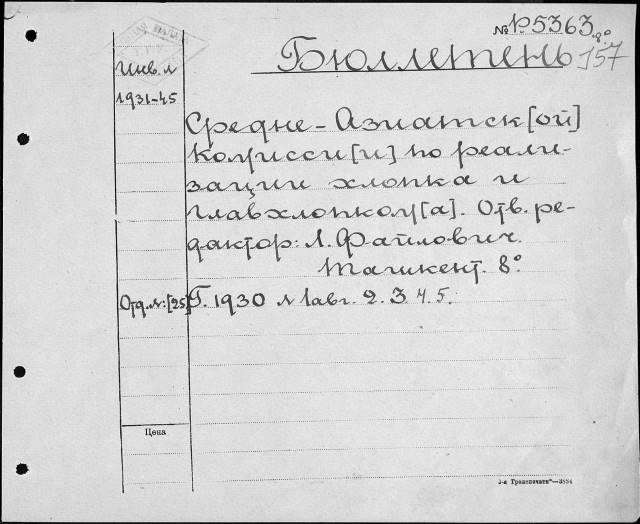 № Р5363
8°
Бюллетень
157
Инв. №
1931-45
Средне-Азиатск[ой]
комисси[и] по реали-
зации хлопка и
Главхлопком[а]. Отв. ре-
дактор: Л. Файлович.
Ташкент. 8°.
Отд. №: [25]
Г. 1930 № 1авг. 2. 3. 4. 5.
Цена
3-я Транспечать"—3884